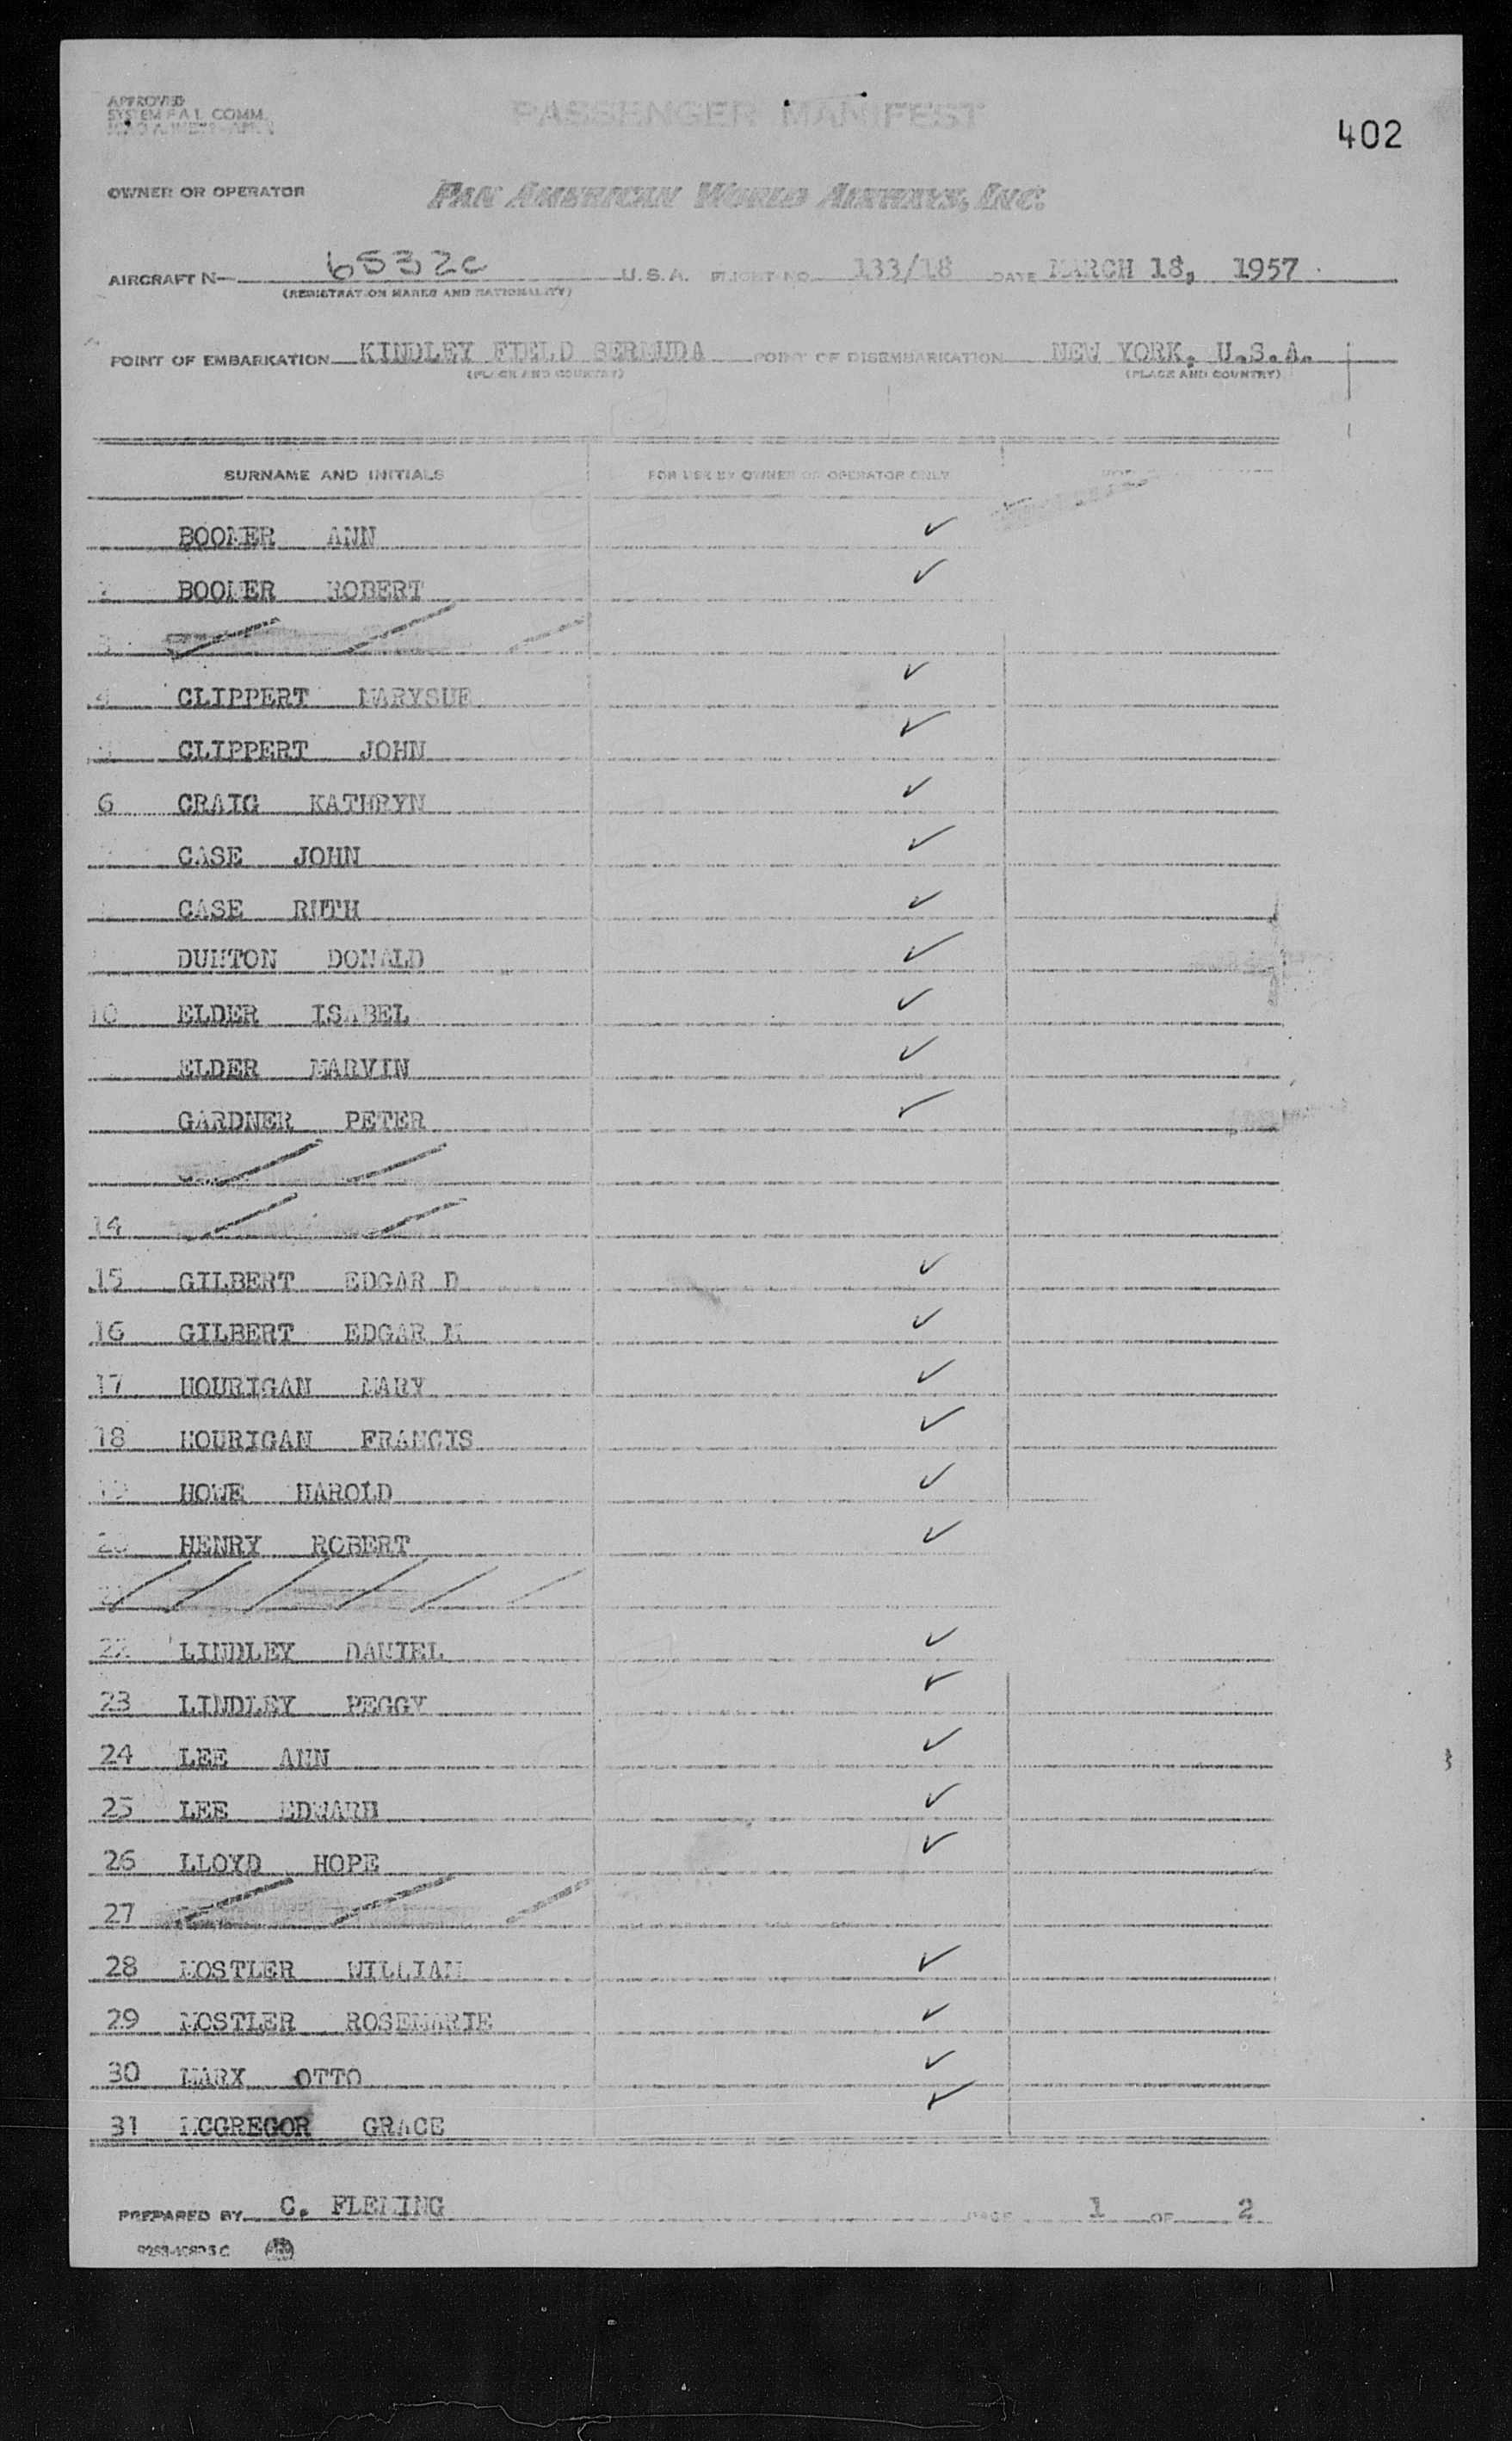 APPROVED
SYSTEM F A L COMM.
PASSENGER MANIFEST
402
OWNER OR OPERATOR PAN AMERICAN WORLD AIRWAYS, INC.
AIRCRAFT N- 6532C U.S.A. FLIGHT NO. 133/18 DATE MARCH 18, 1957
(REGISTRATION MARKS AND NATIONALITY)
POINT OF EMBARKATION KINDLEY FIELD BERMUDA POINT OF DISEMBARKATION NEW YORK, U.S.A.
(PLACE AND COUNTRY) (PLACE AND COUNTRY)
SURNAME AND INITIALS FOR USE BY OWNER OR OPERATOR ONLY
BOOMER ANN ✓
2 BOOMER ROBERT ✓
3
4 CLIPPERT MARYSUE ✓
CLIPPERT JOHN ✓
6 CRAIG KATHRYN ✓
CASE JOHN ✓
CASE RUTH ✓
DONALD ✓
10 ELDER ISABEL ✓
ELDER MARVIN ✓
GARDNER PETER ✓
14
15 GILBERT EDGAR D ✓
16 GILBERT EDGAR M ✓
17 HOURIGAN MARY ✓
18 HOURIGAN FRANCIS ✓
19 HOWE HAROLD ✓
20 HENRY ROBERT ✓
21
22 LINDLEY DANIEL ✓
23 LINDLEY PEGGY ✓
24 LEE ANN ✓
25 LEE EDWARD ✓
26 LLOYD HOPE ✓
27
28 MOSTLER WILLIAM ✓
29 MOSTLER ROSEMARIE ✓
30 MARX OTTO ✓
31 MCGREGOR GRACE ✓
PREPARED BY C. FLEMING PAGE 1 OF 2